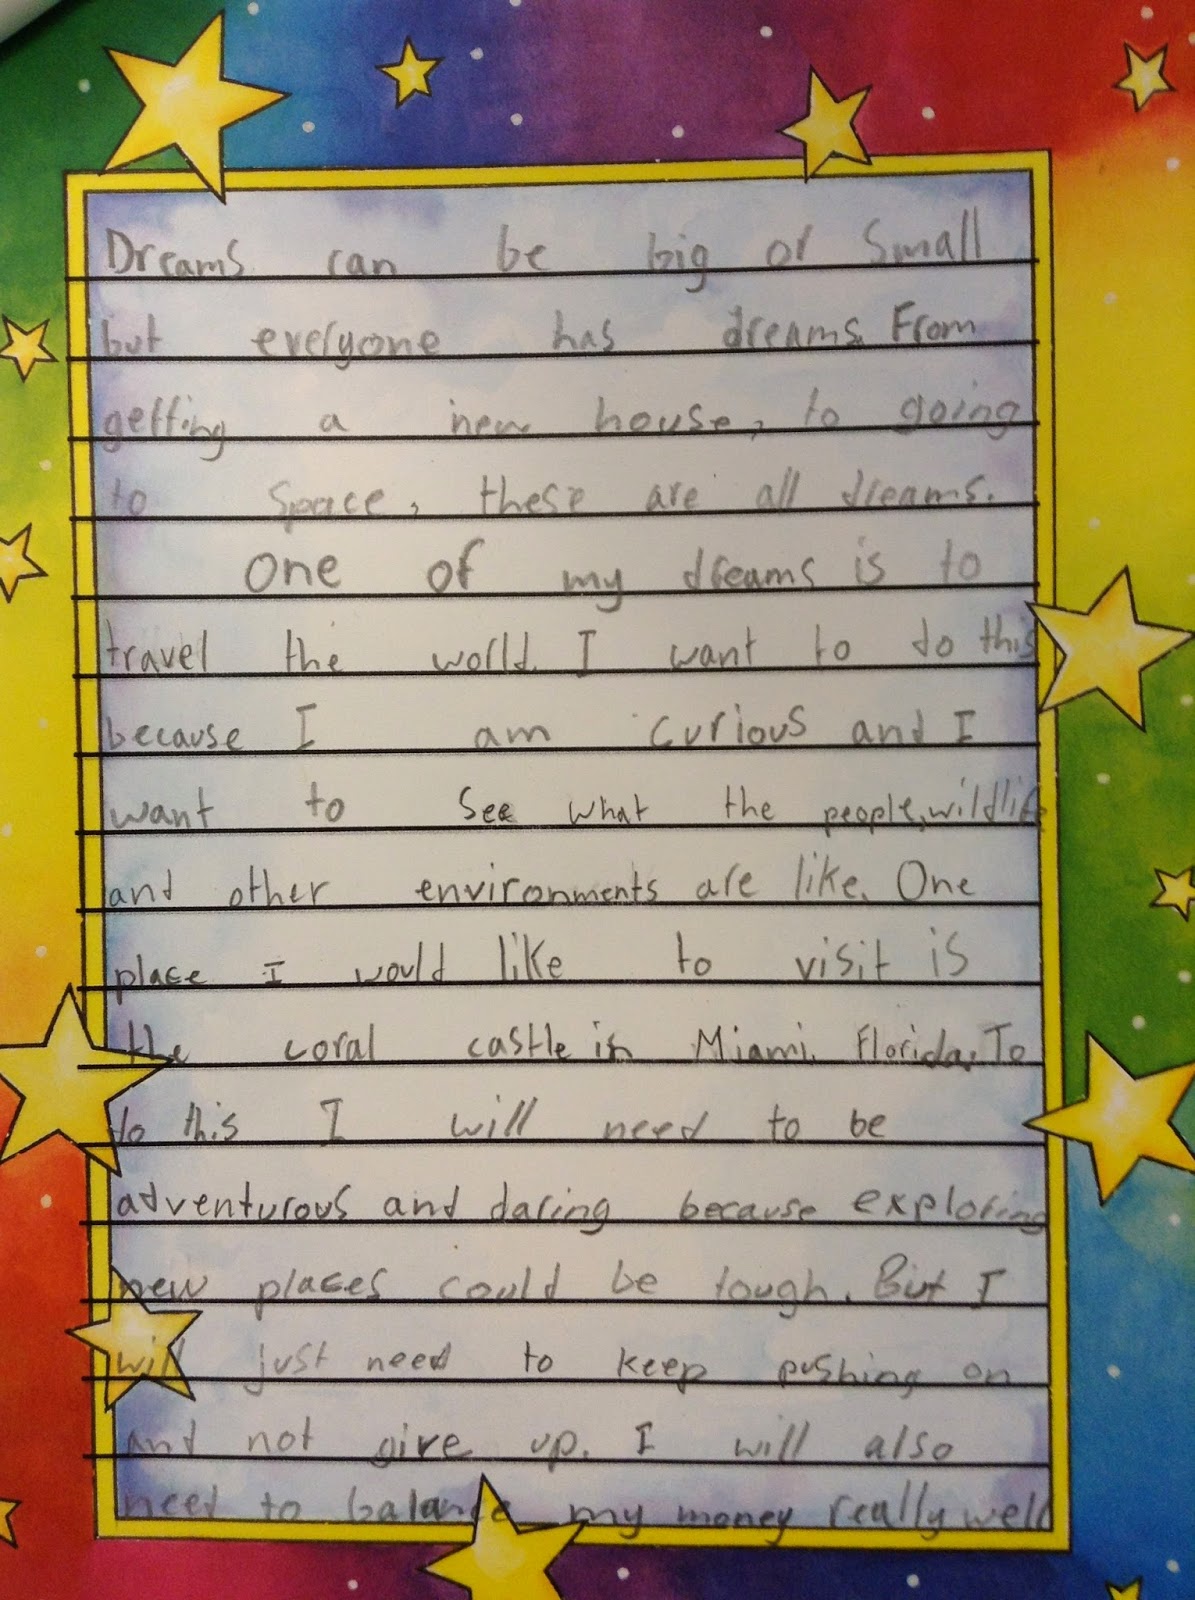 Dreams can be big or small
but everyone has dreams. From
getting a new house, to going
to space, these are all dreams.
One of my dreams is to
travel the world. I want to do this
because I am curious and I
want to see what the people, wildlife
and other environments are like. One
place I would like to visit is
the coral castle in Miami, Florida. To
do this I will need to be
adventurous and daring because exploring
new places could be tough. But I
will just need to keep pushing on
and not give up. I will also
need to balance my money really well